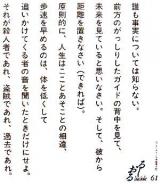 誰も事実については知らない。
前方のがっしりしたガイドの背中を見て、
未来を見ていると思いなさい。そして、彼から
距離を置きなさい（できれば）。
原則的に、人生はこことあそことの相違、
歩速を早めるのは、体を低くして
追いかけてくる者の音を聞いたときだけにせよ。
それが殺人者であれ、盗賊であれ、過去であれ。
61